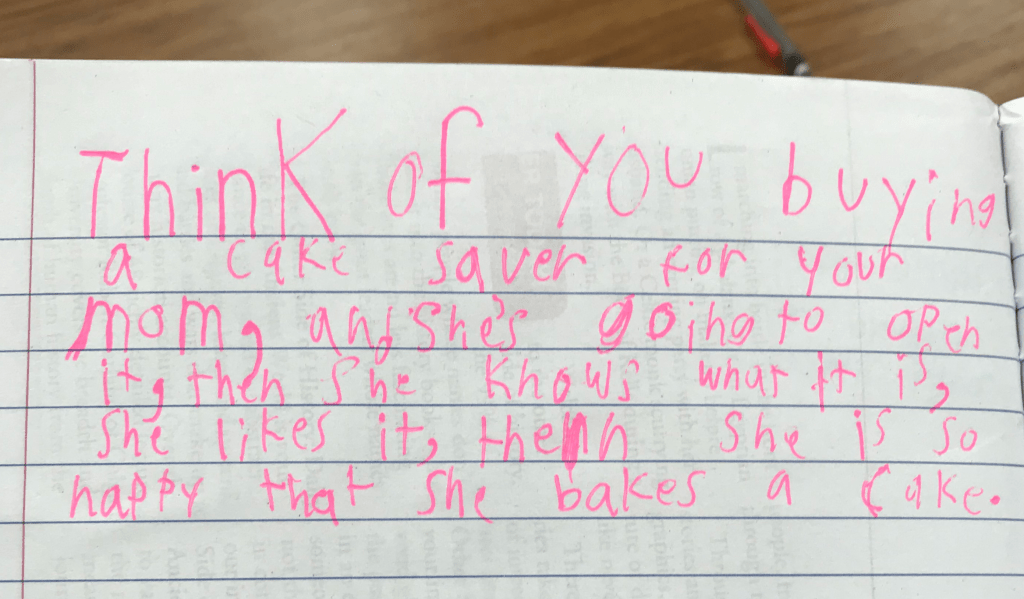 Think of you buying
a cake saver for your
mom, and she's going to open
it, then she knows what it is,
she likes it, then she is so
happy that she bakes a cake.